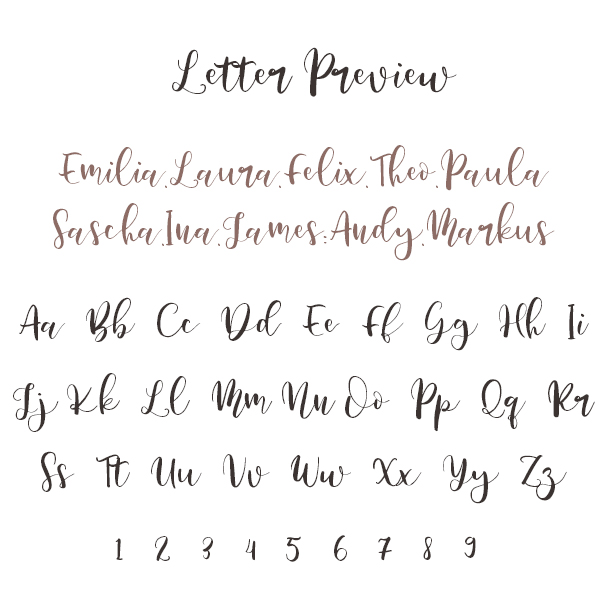 Letter Preview
Emilia.Laura.Felix.Theo.Paula
Sascha.Ina.James.Andy.Markus
Aa Bb Cc Dd Ee Ff Gg Hh Ii
Jj Kk Ll Mm Nn Oo Pp Qq Rr
Ss Tt Uu Vv Ww Xx Yy Zz
1 2 3 4 5 6 7 8 9